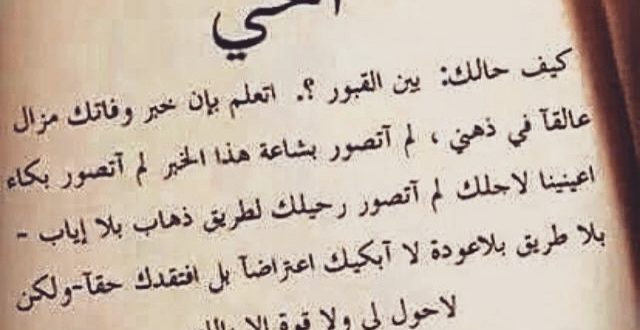 كيف حالك: بين القبور ؟. اتعلم بإن خبر وفاتك مزال
عالقآ في ذهني ، لم آتصور بشاعة هذا الخبر لم آتصور بكاء
اعينينا لاجلك لم آتصور رحيلك لطريق ذهاب بلا إياب -
بلا طريق بلاعودة لا آبكيك اعتراضآ بل افتقدك حقآ-ولكن
لاحول لي ولا قوة إلا بالله